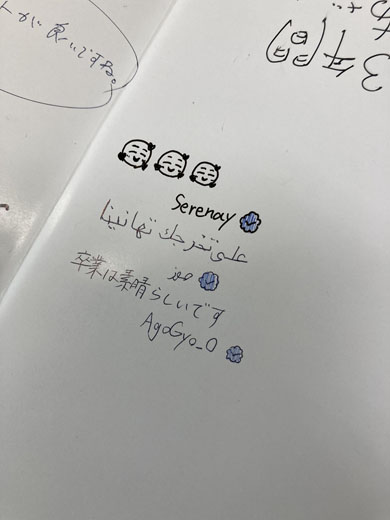 食いですね。
3年
Serenay
على تخرجك تهانينا
卒業は素晴らしいです
AgoGyo_O